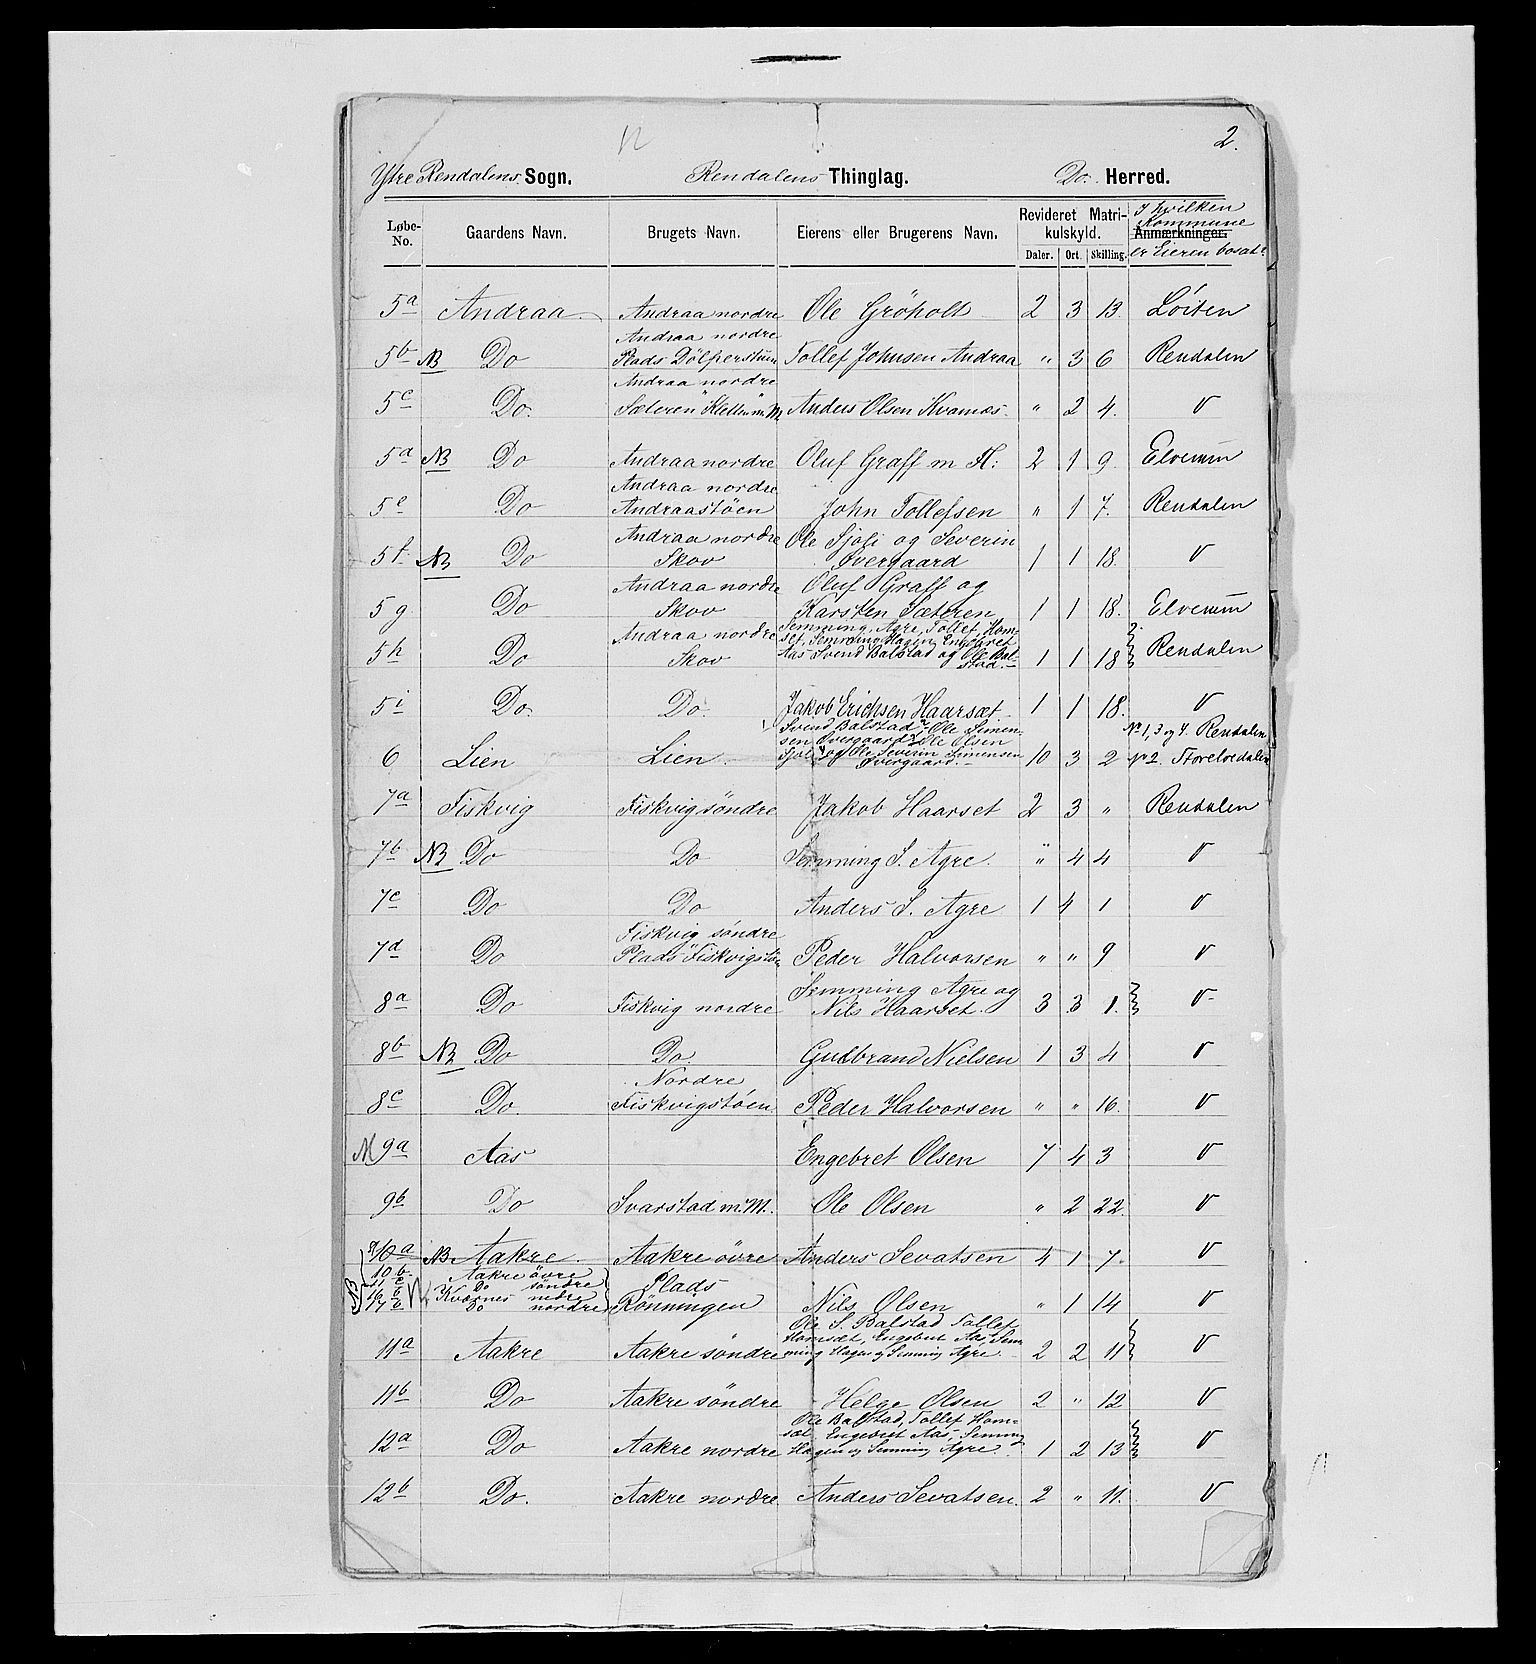 2.
Ytre Rendalens Sogn. Rendalens Thinglag. Do. Herred.
Løbe-No. Gaardens Navn. Brugets Navn. Eierens eller Brugerens Navn. Revideret Matrikulskyld. Daler. Ort. Skilling. Anmærkninger. I hvilken Kommune er Eieren bosat?
5a Andraa Andraa nordre Ole Gröholt 2 3 13. Löiten
Andraa nordre
5b NB Do Plads Tollef Johnsen Andraa " 3 6 Rendalen
Andraa nordre
5c Do. Sæteren m. M. Anders Olsen Kvarnæs " 2 4. V
5d NB Do Andraa nordre Oluf Graff m Fl: 2 1 9. Elverum
Andraa nordre
5e Do Andraastöen John Tollefsen " 1 7. Rendalen
Andraa nordre Ole Sjøli og Severin
5f NB Do Skov Øvergaard 1 1 18. V
Andraa nordre Oluf Graff og
5g Do Skov Karsten Sæteren 1 1 18. Elverum
Semming Agre, Tollef Hom-
Andraa nordre set, Semming Hagen, Engebret
5h Do Skov Aas Svend Balstad og Ole Bal-stad. 1 1 18 Rendalen
5i Do. Do. Jakob Erichsen Haarsæt 1 1 18. V
Svend Balstad, Ole Simen- No 1, 3 og 4. Rendalen
sen Øvergaard, Ole Olsen
6 Lien Lien Sjøli og Ole Severin Simensen Øvergaard. 10 3 2 No 2. Storelvedalen
7a Fiskvig Fiskvig söndre Jakob Haarset 2 3 " Rendalen
7b NB Do Do Semming S. Agre. " 4 4 V
7c Do Do Anders S. Agre 1 4 1 V
Fiskvig söndre
7d Do Plads Fiskvigstöen Peder Halvorsen " " 9 V
Semming Agre og
8a Do Fiskvig nordre Nils Haarset. 3 3 1. V
8b NB Do Do. Gulbrand Nielsen 1 3 4 V
Nordre
8c Do. Fiskvigstöen Peder Halvorsen " " 16. V
9a Aas Engebret Olsen 7 4 3 V
9b Do Svarstad m. M. Ole Olsen " 2 22. V
10a NB Aakre Aakre övre Anders Sevatsen 4 1 7. V
10b Aakre övre
11c Do söndre Plads
16b Kværnes nedre
17b Do nordre Rönningen Nils Olsen " 1 14 V
Ole S. Balstad Tollef
Homsæt, Engebret Aas, Sem-
11a Aakre Aakre söndre ming Hagen og Semming Agre. 2 2 11 V
11b Do Aakre söndre Helge Olsen 2 " 12 V
Ole Balstad, Tollef Hom-
sæt Engebret Aas, Semming
12a Do Aakre nordre Hagen og Semming Agre. 1 2 13 V
12b Do. Aakre nordre Anders Sevatsen 2 " 11. V